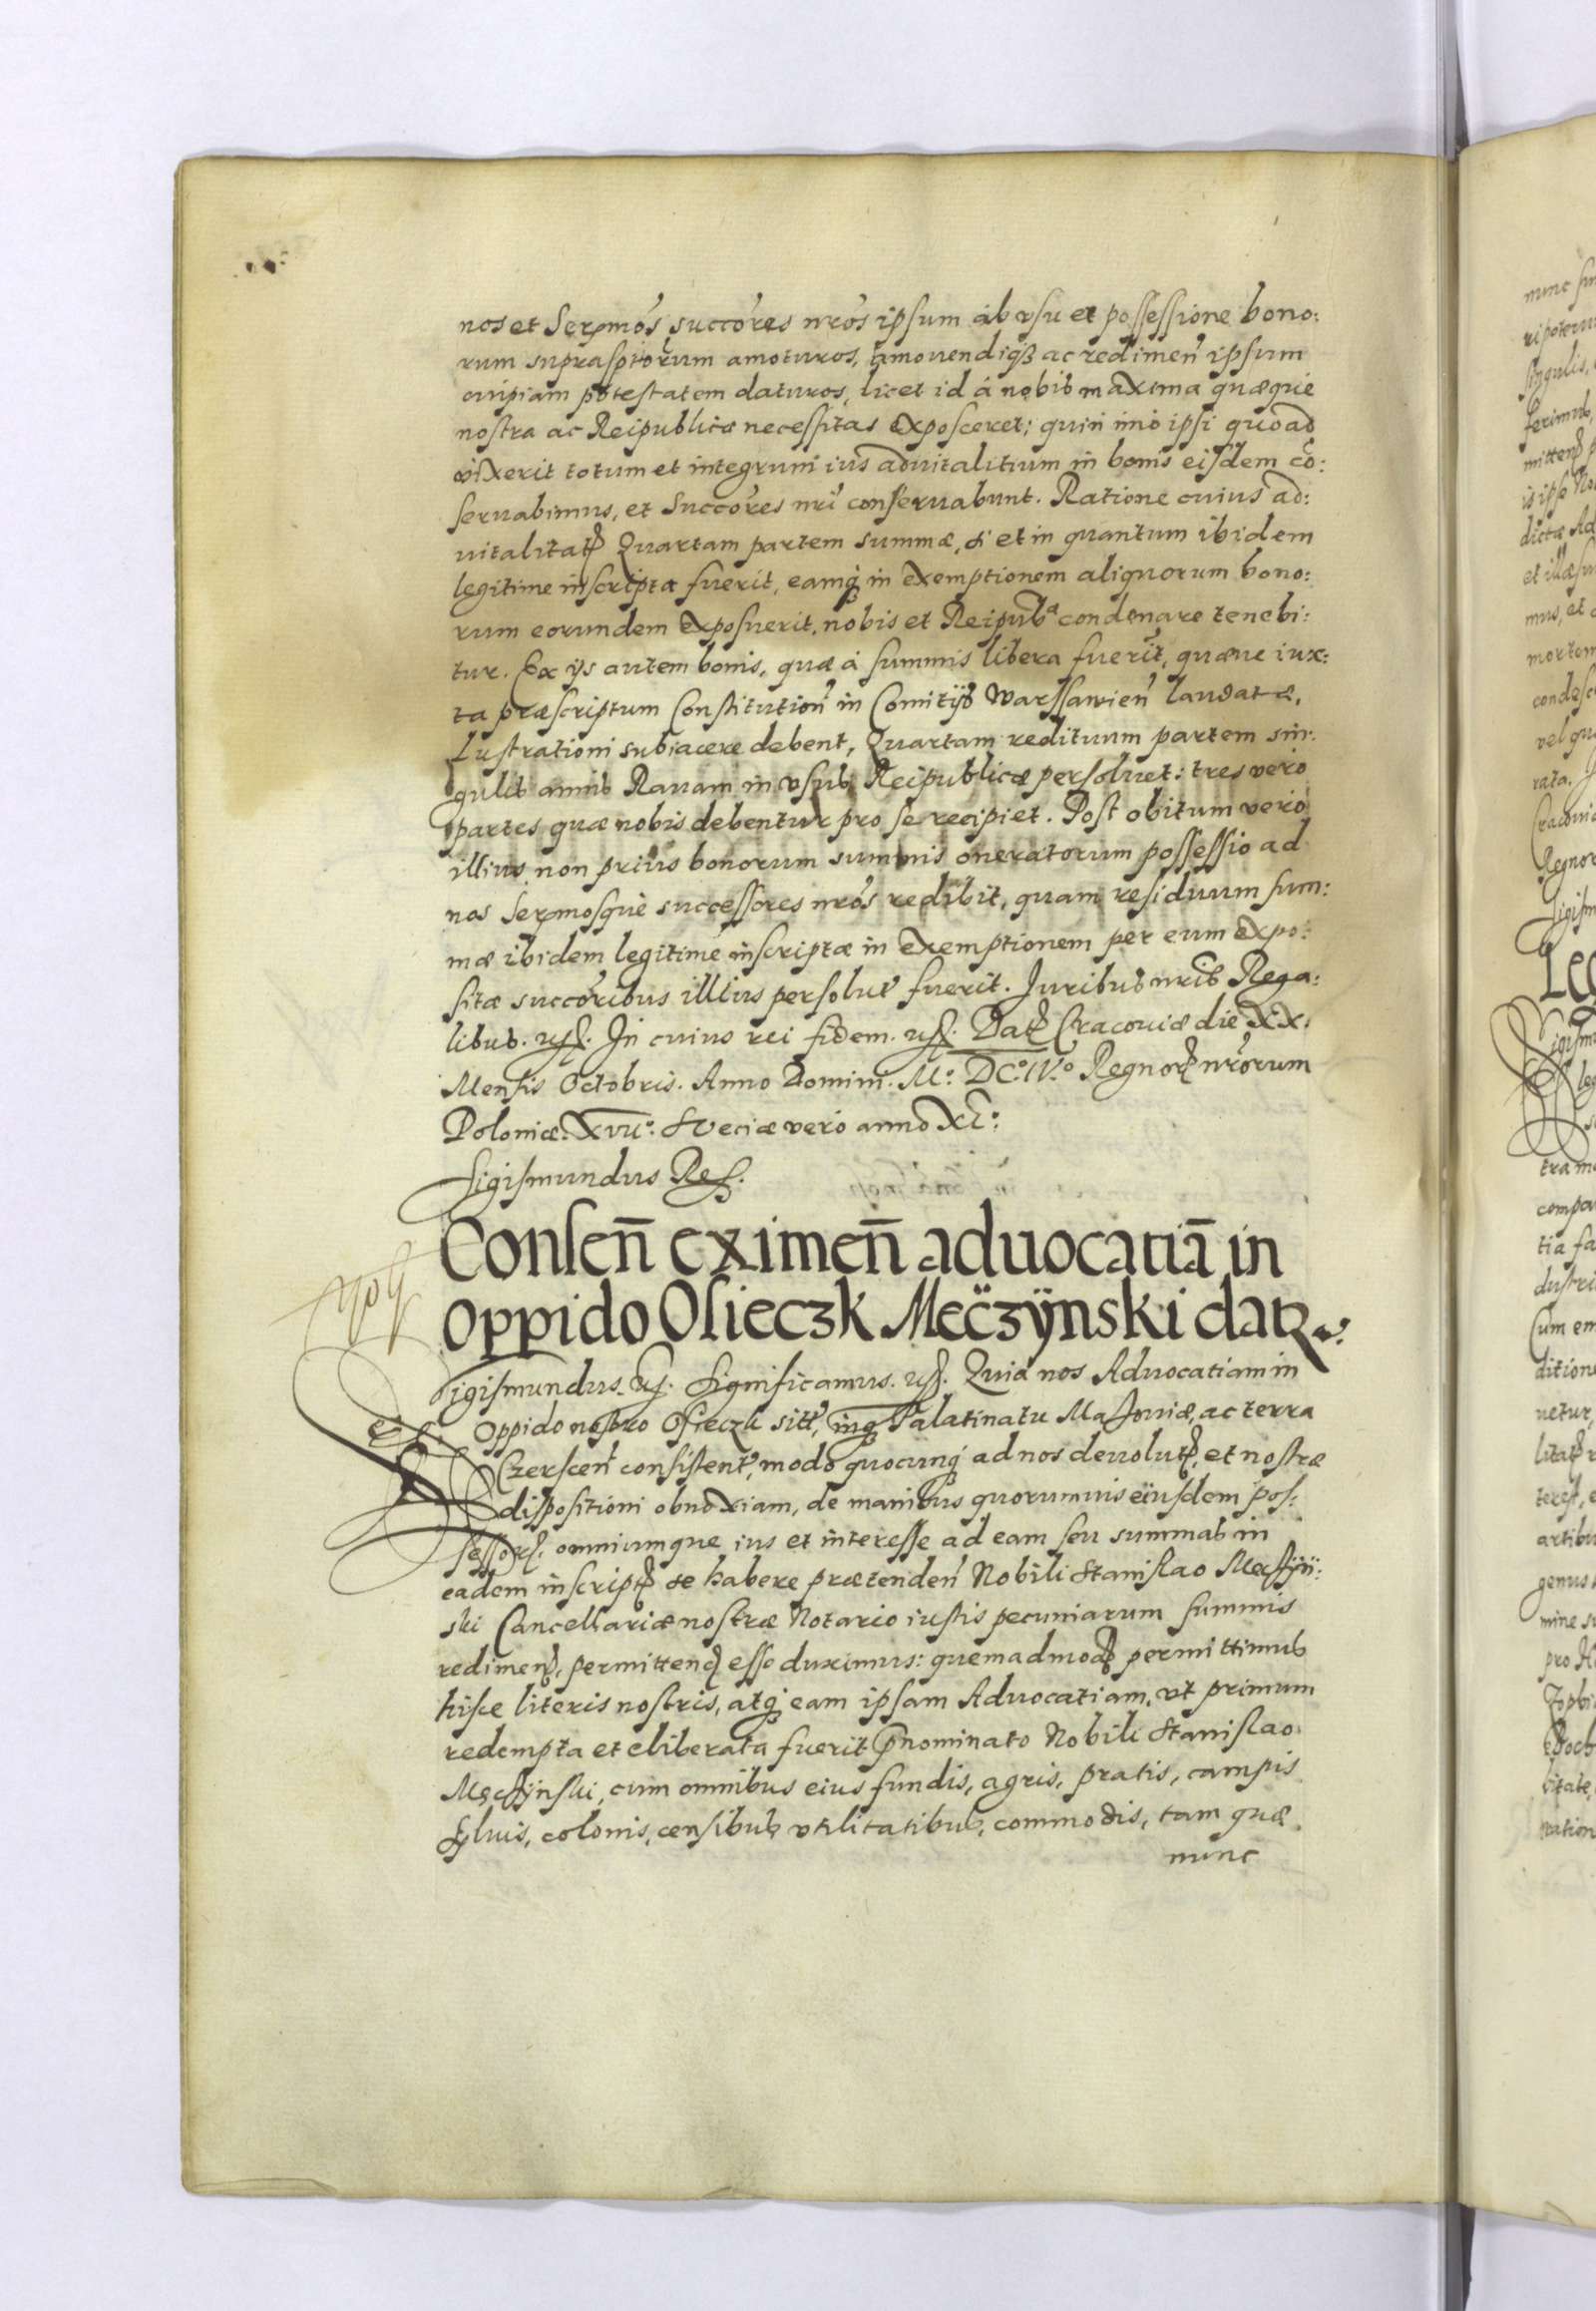 nos et Serꝫmós succóres nrós ipsum ab vsu et possessione bono:
rum suprasptórum amoturos, amouendiqꝫ ac redimeñ ipsum
cuipiam potestatem daturos, licet id á nobis maxima quæque
nostra ac Reipublicæ necessitas exposceret; quin imò ipsi quoad
vixerit totum et integrum ius aduitalitium in bonis eisdem cō:
seruabimus, et Succóres nrí conseruabunt. Ratione cuius ad:
uitalitatꝭ Quartam partem summæ, si et in quantum ibidem
legitime inscripta fuerit, eamqꝫ in exemptionem aliquorum bono:
rum eorundem exposuerit, nobis et Reipubᶜᵃ condonare tenebi:
tur. Ex ijs autem bonis, quæ à summis libera fuerit, quæue iux:
ta præscriptum Constitutioñ in Comitijs Warssawieñ laudatæ,
Lustrationi subiacere debent, Quartam redituum partem sin:
gulis annis Rauam in vsus Reipublicæ persoluet: tres vero
partes quæ nobis debentur pro se recipiet. Post obitum vero
illius non prius bonorum summis oneratorum possessio ad
nos Serꝫmosque successores nrós redibit, quam residuum sum:
mæ ibidem legitimé inscriptæ in exemptionem per eum expo:
sitæ succoribus illius persolut' fuerit. Juribus nris Rega:
libus. usꝭ. In cuius rei fidem. usꝭ. Datꝭ Cracouiæ die XX.
Mensis Octobris. Anno Domini. Mᵒ: DCᵒ: IVᵒ. Regnorꝫ nrórum
Poloniæ. XVIIᵒ. Sveciæ vero anno XIᵒ:
Sigismundus Rex.
Conseñ eximeñ aduocatiā in
oppido Osieczk Mecżÿnski datꝫ.
Sigismundus. usꝭ. Significamus. usꝭ. Quia nos Aduocatiam in
oppido nostro Osieczk sitt', inqꝫ Palatinatu Masouiæ, ac terra
Czersceñ consistent', modo quocunqꝫ ad nos deuolutꝭ, et nostræ
dispositioni obnoxiam, de manibus quorumuis eiusdem pos:
sessorꝫ. omniumque ius et interesse ad eam seu summas in
eadem inscriptꝭ se habere prætendeñ Nobili Stanislao Mecssÿn:
ski Cancellariæ nostræ Notario iustis pecuniarum summis
redimenꝭ, permittendꝭ esse duximus: quemadmodꝫ permittimus
hisce literis nostris, atqꝫ eam ipsam Aduocatiam, vt primum
redempta et eliberata fuerit p̄nominato Nobili Stanislao
Męcssÿnski, cum omnibus eius fundis, agris, pratis, campis
Syluis, colonis, censibus vtilitatibus, commodis, tam quæ
nunc